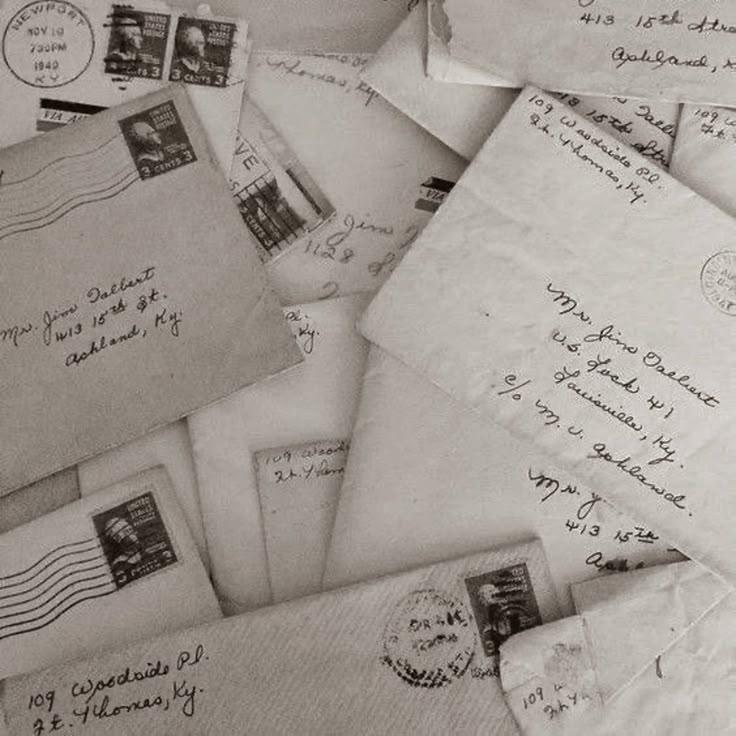 NEWPORT
NOV 19
730PM
1940
KY.
UNITED STATES POSTAGE
3 CENTS 3
3 CENTS 3
VIA AIR
Thomas, Ky.
413 15th Street
Ashland,
UNITED STATES POSTAGE
3 CENTS 3
Mr. Jim Talbert
413 15th St.
Ashland, Ky.
VIA
Jim
1128
15th Str
109 Woodside Pl.
Ft. Thomas, Ky.
Mr. Jim Talbert
U.S. Lock 41
Louisville, Ky.
c/o M. V. Ashland.
109
Pl.
Ky.
109 Woods
Ft. Thom
Mr. J
413 15th
UNITED STATES POSTAGE
3
109 Woodside Pl.
Ft. Thomas, Ky.
109